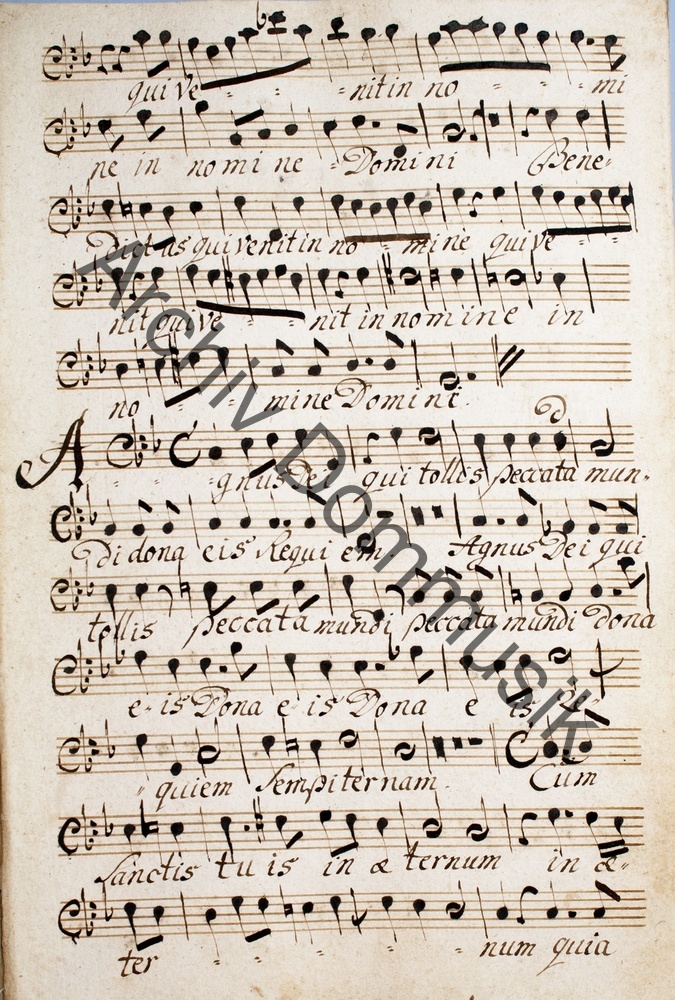 qui ve - - - nit in no - - - mi
ne in nomine - Domini Bene-
dictus qui venit in no - mine qui ve -
nit qui ve - - nit in nomine in
no - - mine Domini.
A - - gnus Dei qui tollis peccata mun-
di dona eis Requiem Agnus Dei qui
tollis peccata mundi peccata mundi dona
e-is Dona e is Dona e is Re-
- quiem sempiternam. Cum
Sanctis tuis in æternum in æ-
ter - - - - - num quia
Archiv Dommusik